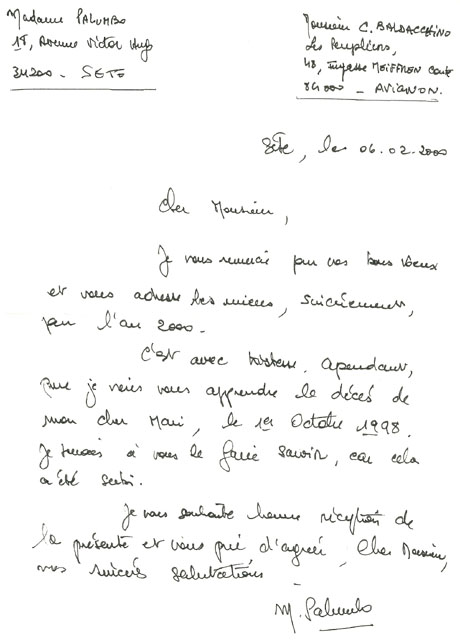 Madame PALUMBO
18, Avenue Victor Hugo
34200 - SETE
Monsieur C. BALDACCHINO
Les Peupliers,
48, Impasse MOIFFRON
84000 - AVIGNON.
Sète, le 06.02.2000
Cher Monsieur,
Je vous remercie pour vos bons voeux
et vous adresse les miens, sincèrement,
pour l'an 2000.
C'est avec tristesse, cependant,
que je viens vous apprendre le décès de
mon cher Mari, le 1er Octobre 1998.
Je tenais à vous le faire savoir, car cela
a été subi.
Je vous souhaite bonne réception de
la présente et vous prie d'agréer, Cher Monsieur,
mes sincères salutations
M. Palumbo